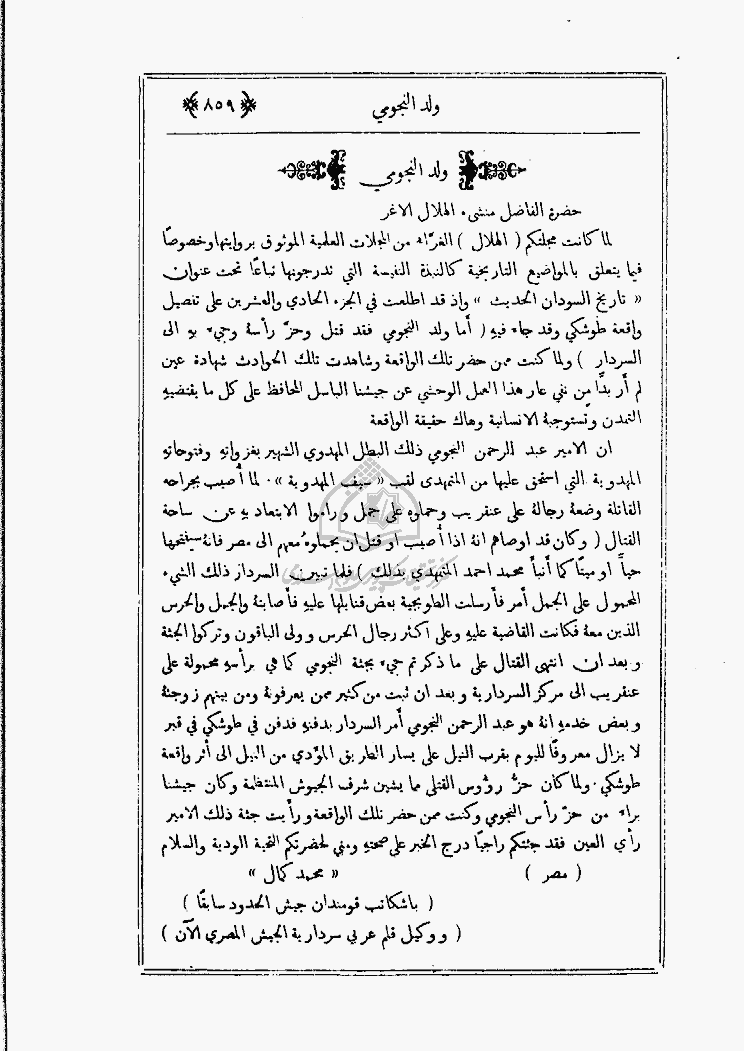 ولد النجومي
﴿٨٥٩﴾
ولد النجومي
حضرة الفاضل منشىء الهلال الاغر
لما كانت مجلتكم ( الهلال ) الغرَّاء من المجلات العلمية الموثوق بروايتها وخصوصًا
فيما يتعلق بالمواضيع التاريخية كالنبذة النفيسة التي تدرجونها تباعًا تحت عنوان
« تاريخ السودان الحديث » واذ قد اطلعت في الجزء الحادي والعشرين على تفصيل
واقعة طوشكي وقد جاء فيهِ ( أما ولد النجومي فقد قتل وحزَّ رأسهُ وجيء بهِ الى
السردار ) ولما كنت ممن حضر تلك الواقعة وشاهدت تلك الحوادث شهادة عين
لم أر بدًّا من نفي عار هذا العمل الوحشي عن جيشنا الباسل المحافظ على كل ما يقتضيهِ
التمدن وتستوجبهُ الانسانية وهاك حقيقة الواقعة
ان الامير عبد الرحمن النجومي ذلك البطل المهدوي الشهير بغزواتهِ وفتوحاتهِ
المهدوية التي استحق عليها من المتمهدى لقب « سيف المهدوية » . لما أصيب بجراحه
القاتلة وضعهُ رجالهُ على عنقريب وحملوه على جمل وراموا الابتعاد بهِ عن ساحة
القتال ( وكان قد اوصاهم انهُ اذا أصيب او قتل ان يحملوهُ معهم الى مصر فانهُ سيفتحها
حياً او ميتًا كما أنبأ محمد احمد المتمهدي بذلك ) فلما تبين السردار ذلك الشيء
المحمول على الجمل أمر فأرسلت الطوبجية بعض قنابلها عليهِ فأصابتهُ والجمل والحرس
الذين معهُ فكانت القاضية عليهِ وعلى اكثر رجال الحرس وولى الباقون وتركوا الجثة
وبعد ان انتهى القتال على ما ذكر تم جيء بجثة النجومي كما هي برأسهِ محمولة على
عنقريب الى مركز السردارية وبعد ان ثبت من كثير ممن يعرفونهُ ومن بينهم زوجتهُ
وبعض خدمهِ انهُ هو عبد الرحمن النجومي أمر السردار بدفنهِ فدفن في طوشكي في قبر
لا يزال معروفًا لليوم بقرب النيل على يسار الطريق المؤدي من النيل الى أثر واقعة
طوشكي . ولما كان حزُّ رؤوس القتلى مما يشين شرف الجيوش المنتظمة وكان جيشنا
براء من حزّ رأس النجومي وكنت ممن حضر تلك الواقعة ورأيت جثة ذلك الامير
رأي العين فقد جئتكم راجيًا درج الخبر على صحتهِ ومني لحضرتكم التحية الودية والسلام
( مصر ) « محمد كمال »
( باشكاتب قومندان جيش الحدود سابقًا )
( ووكيل قلم عربي سردارية الجيش المصري الآن )